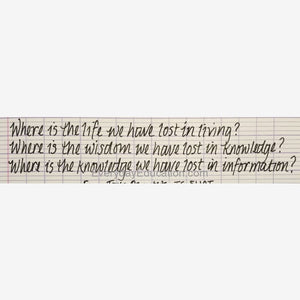 Where is the life we have lost in living?
Where is the wisdom we have lost in knowledge?
Where is the knowledge we have lost in information?
EverydayEducation.com